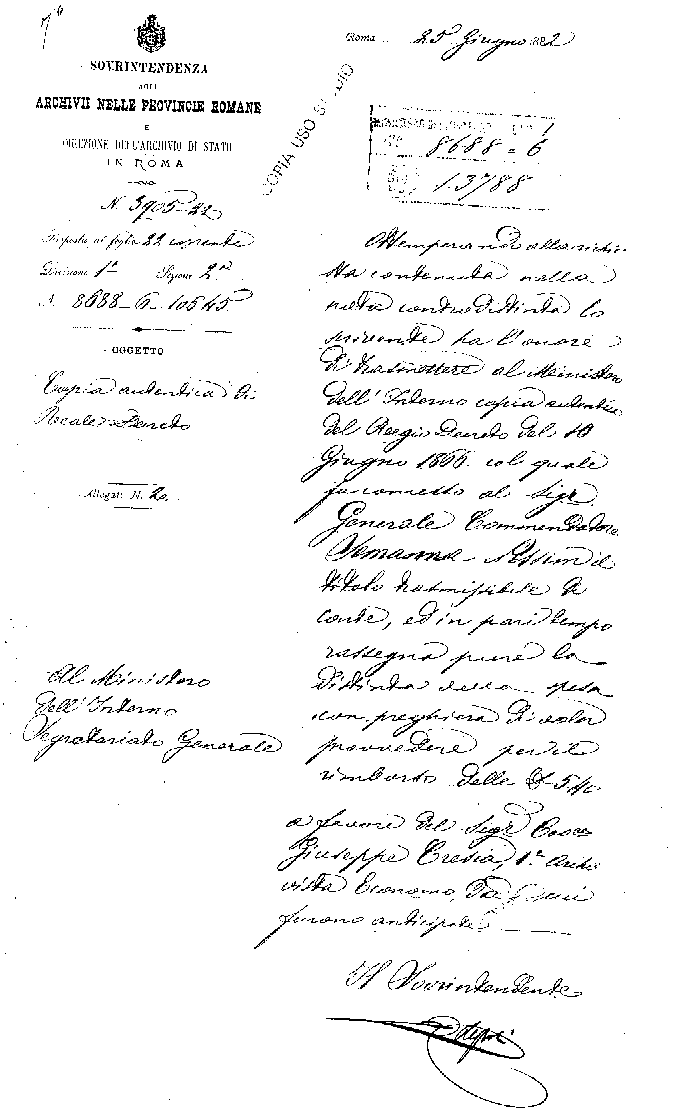 Roma 25 Giugno 1882
SOVRINTENDENZA
AGLI
ARCHIVII NELLE PROVINCIE ROMANE
E
DIREZIONE DELL'ARCHIVIO DI STATO
IN ROMA
COPIA USO STUDIO
8688 = 6
13788
N. 3905-22
Risposta al foglio 22 corrente
Divisione 1ª Sezione 2ª
N. 8688-6-10645
OGGETTO
Copia autentica di
Reale Decreto
Allegati N. 2
Al Ministero
dell'Interno
Segretariato Generale
Ottemperando alla richie
sta contenuta nella
nota controdistinta lo
scrivente ha l'onore
di trasmettere al Ministero
dell'Interno copia autentica
del Regio Decreto del 10
Giugno 1866 col quale
fu concesso al Sigr
Generale Commendatore
il
titolo trasmissibile di
conte, ed in pari tempo
rassegna pure la
distinta della spesa
con preghiera di voler
provvedere per il
rimborso delle £ 5.40
a favore del Sigr
Giuseppe 1º Archi
vista Economo, da cui
furono anticipate
Il Sovrintendente